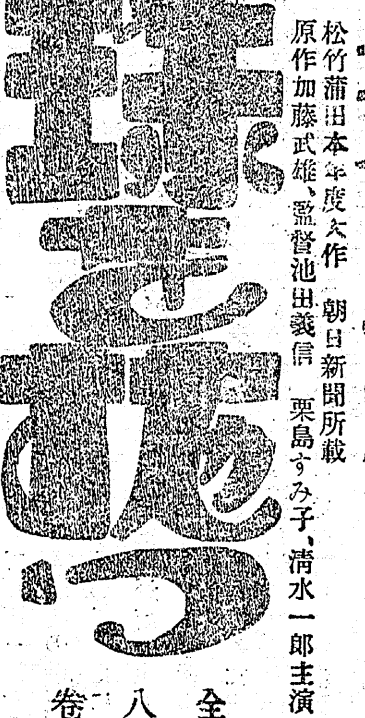 松竹蒲田本年度大作 朝日新聞所載
原作加藤武雄、監督池田義信 栗島すみ子、清水一郎主演
珠を抛つ
全八巻